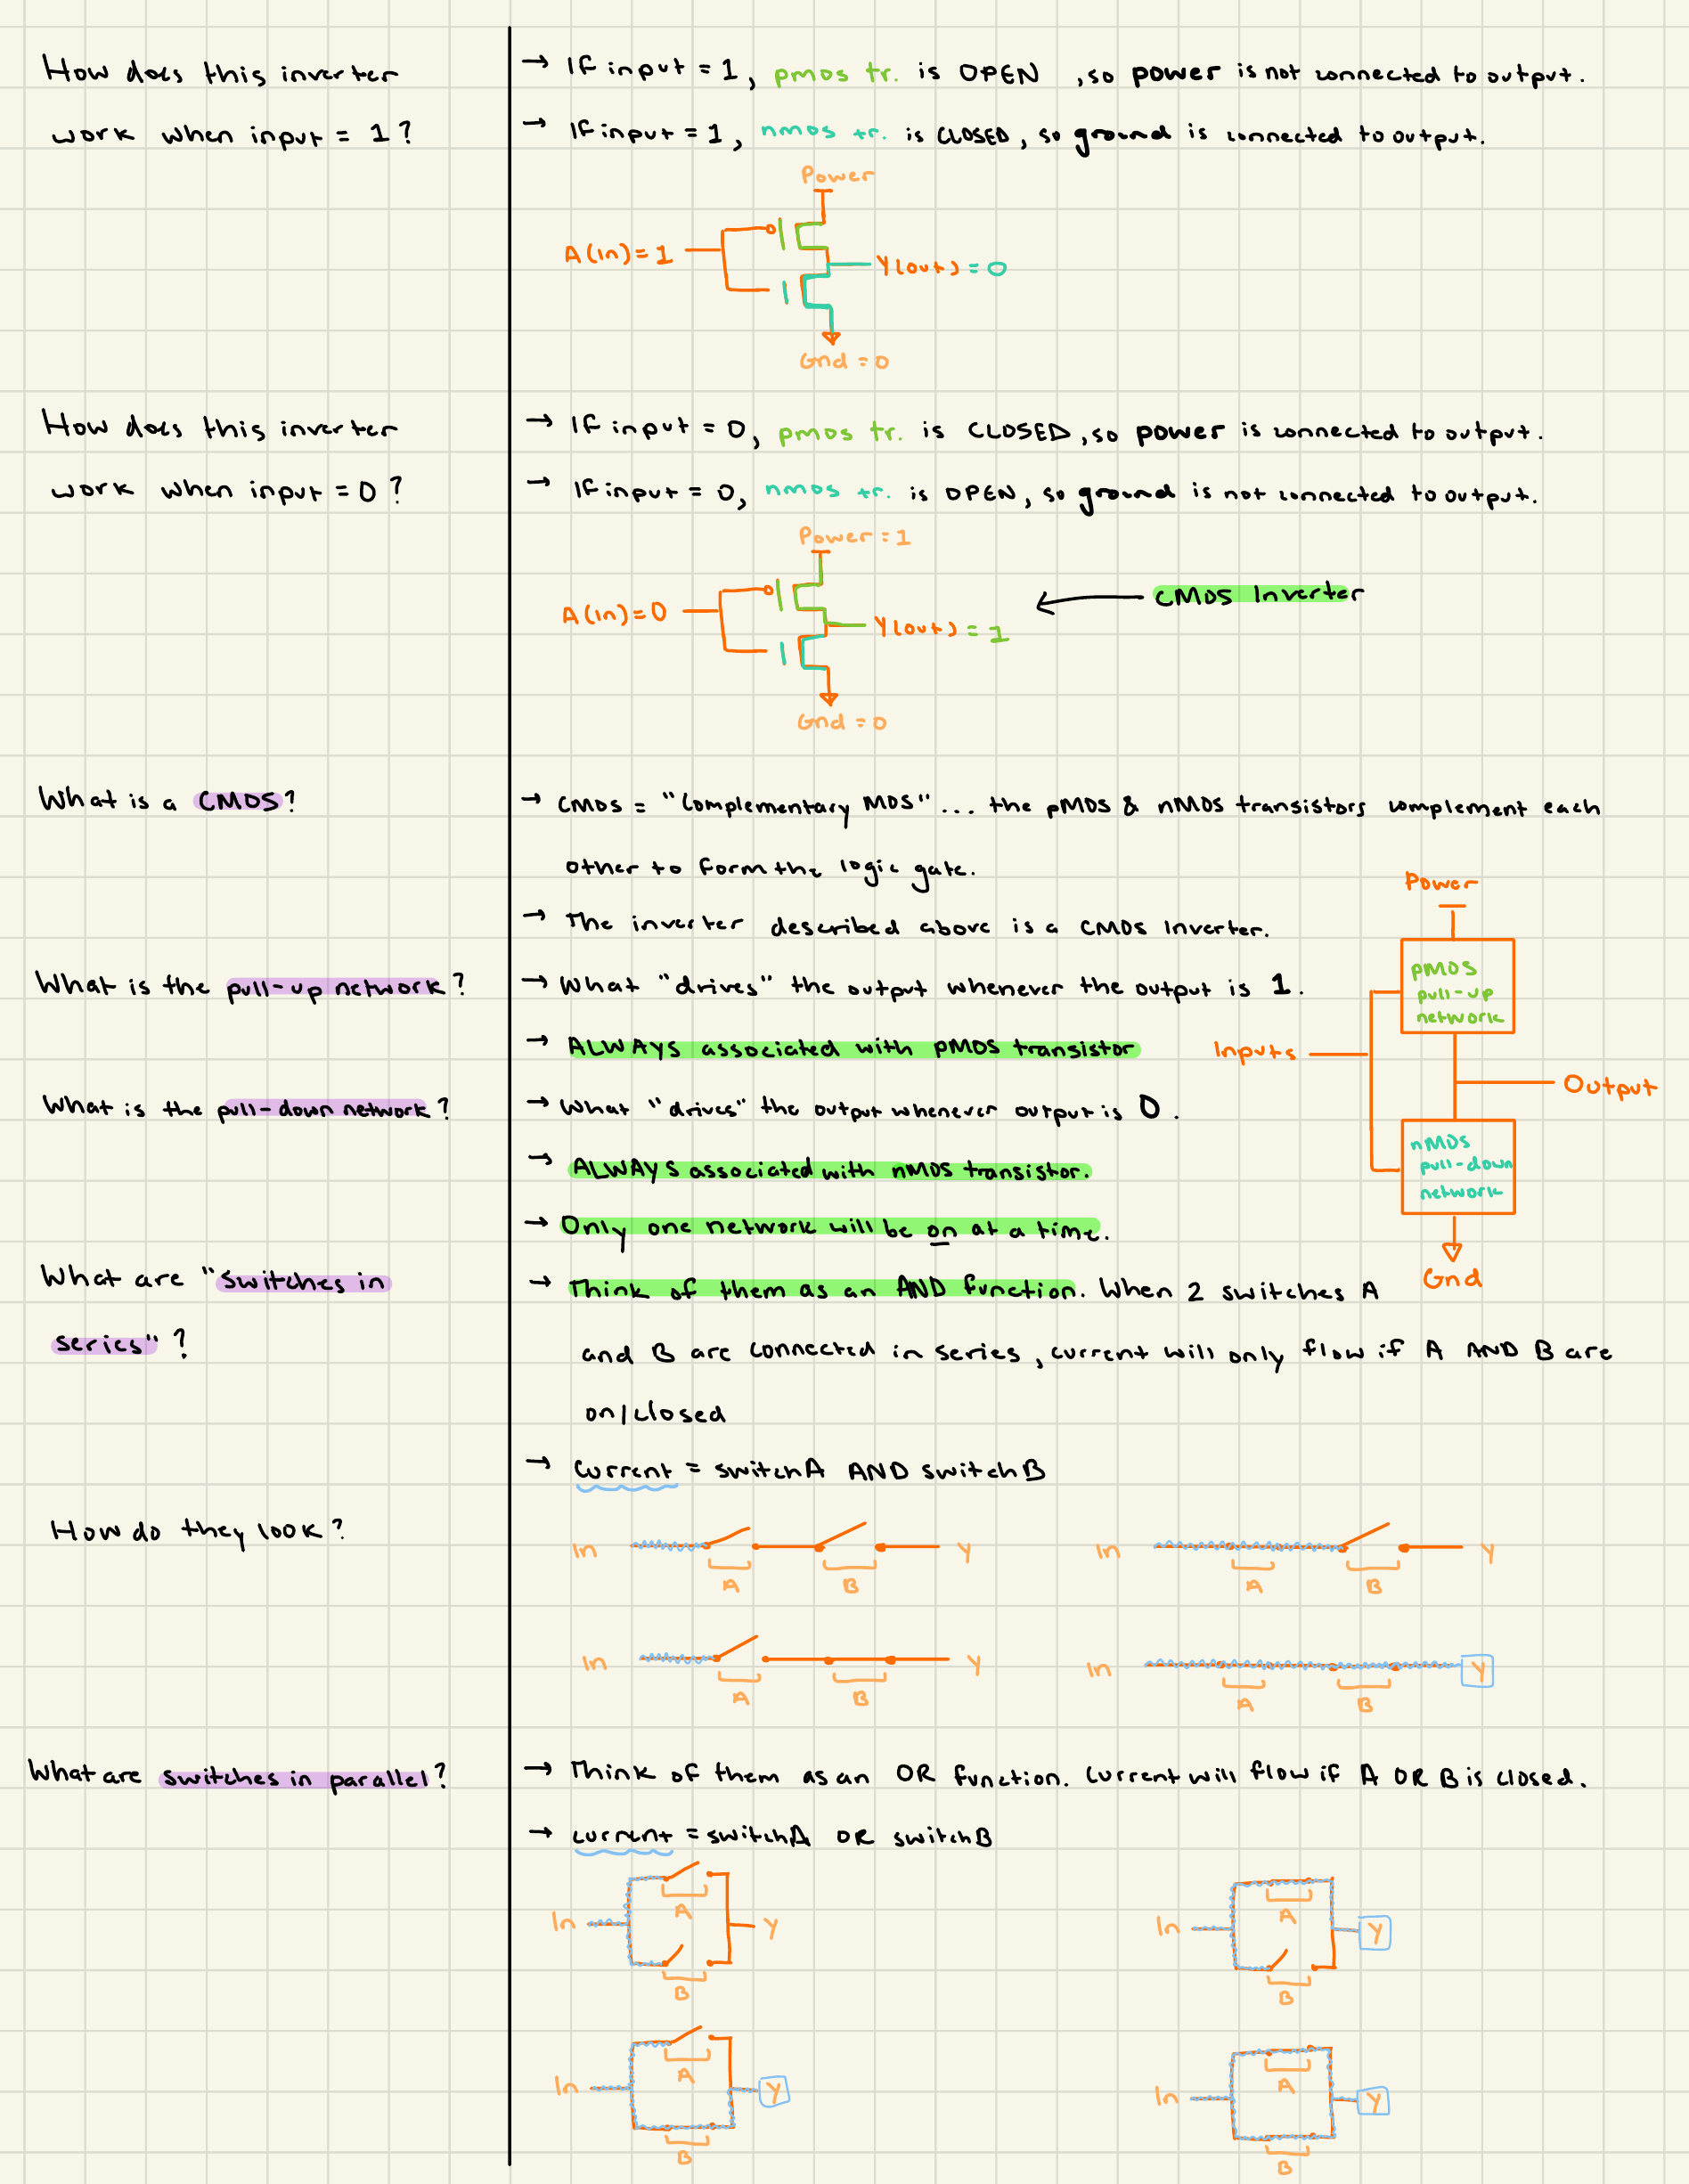 How does this inverter
work when input = 1?
→ If input = 1, pmos tr. is OPEN , so power is not connected to output.
→ If input = 1, nmos tr. is CLOSED, so ground is connected to output.
Power
A (in) = 1
Y(out) = 0
Gnd = 0
How does this inverter
work when input = 0?
→ If input = 0, pmos tr. is CLOSED, so power is connected to output.
→ If input = 0, nmos tr. is OPEN, so ground is not connected to output.
Power = 1
A (in) = 0
Y(out) = 1
Gnd = 0
CMOS Inverter
What is a CMOS?
→ CMOS = "Complementary MOS"... the pMOS & nMOS transistors complement each
other to form the logic gate.
→ The inverter described above is a CMOS Inverter.
What is the pull-up network?
→ What "drives" the output whenever the output is 1.
→ ALWAYS associated with pMOS transistor
What is the pull-down network?
→ What "drives" the output whenever output is 0.
→ ALWAYS associated with nMOS transistor.
→ Only one network will be on at a time.
Power
pMOS
pull-up
network
Inputs
Output
nMOS
pull-down
network
Gnd
What are "switches in
series"?
→ Think of them as an AND function. When 2 switches A
and B are connected in series, current will only flow if A AND B are
on/closed
→ Current = switchA AND switchB
How do they look?
In A B Y
In A B Y
In A B Y
In A B Y
What are switches in parallel?
→ Think of them as an OR function. Current will flow if A OR B is closed.
→ current = switchA OR switchB
In A B Y
In A B Y
In A B Y
In A B Y